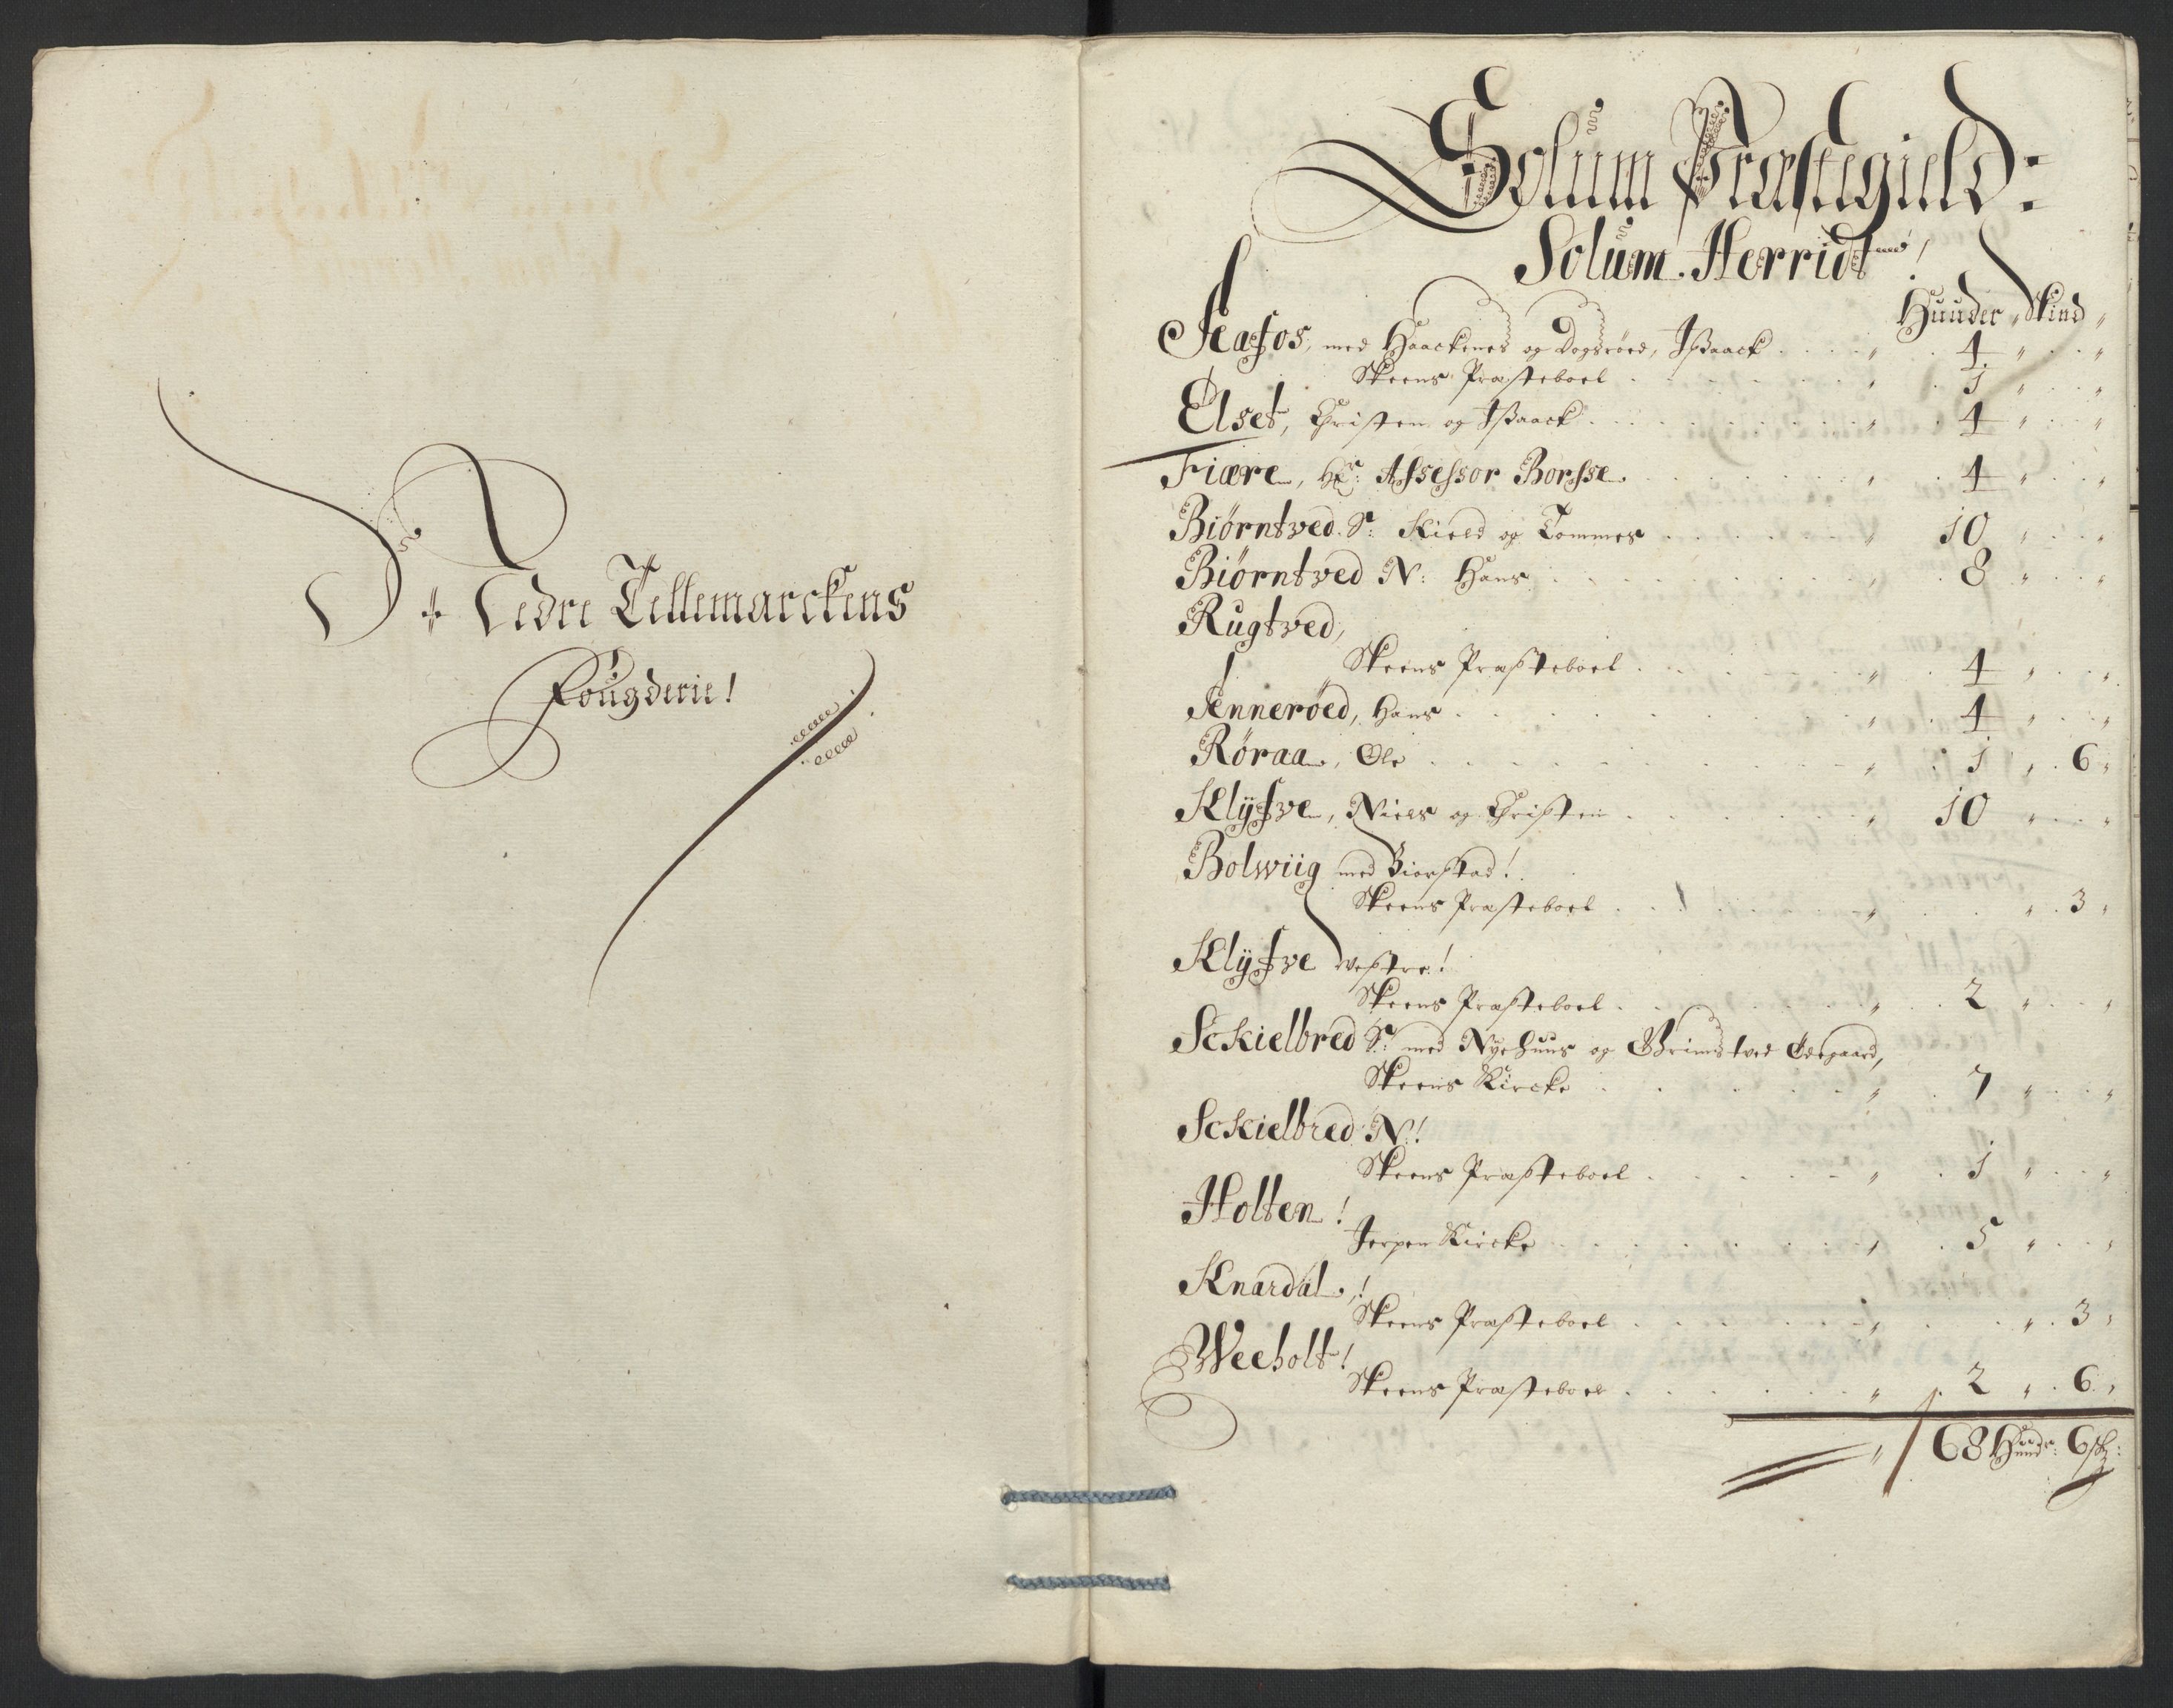 Nedre Tellemarckens
Fougderie!
Solum Præstegield:
Solum Herridt!
Huuder, Skind,
Feafos, med Haackenes og Dogsröed, Jßaack . . . . „ . 4 „ . . „
Skeens Præsteboel . . . . . . . „ . 1 „ . . „
Elset, Christen og Jßaack . . . . . . . „ . 4 „ . . „
Fiære, Hr: Assessor Borsse . . . . . . „ . 4 „ . . „
Biørntved. Sr: Kield og Tommes . . . . . . „ 10 „ . . „
Biørntved N: Hans . . . . . . . . „ . 8 „ . . „
Rugtved,
Skeens Præsteboel . . . . . . . „ . 4 „ . . „
Fennerøed, Hans . . . . . . . . „ . 4 „ . . „
Røraa, Ole . . . . . . . . . „ . 1 „ . 6 „
Klÿfve, Niels og Christen . . . . . . . „ 10 „ . . „
Bolwiig med Biorstad!
Skeens Præsteboel . . . . . . . „ . . „ . 3 „
Klÿfve Vestre!
Skeens Præsteboel . . . . . . . „ . 2 „ . . „
Sckielbred Sr: med Nyehuus og Grimstved Ødegaard,
Skeens Kircke . . . . . . . „ . 7 „ . . „
Sckielbred N!
Skeens Præsteboel . . . . . . „ . 1 „ . . „
Holten!
Jerpen Kircke . . . . . . . . „ . 5 „ . . „
Knardal,!
Skeens Præsteboel . . . . . . . „ . . „ . 3 „
Weeholt!
Skeens Præsteboel . . . . . . . „ . 2 „ . 6 „
„ 68 Huudr: 6 sk: